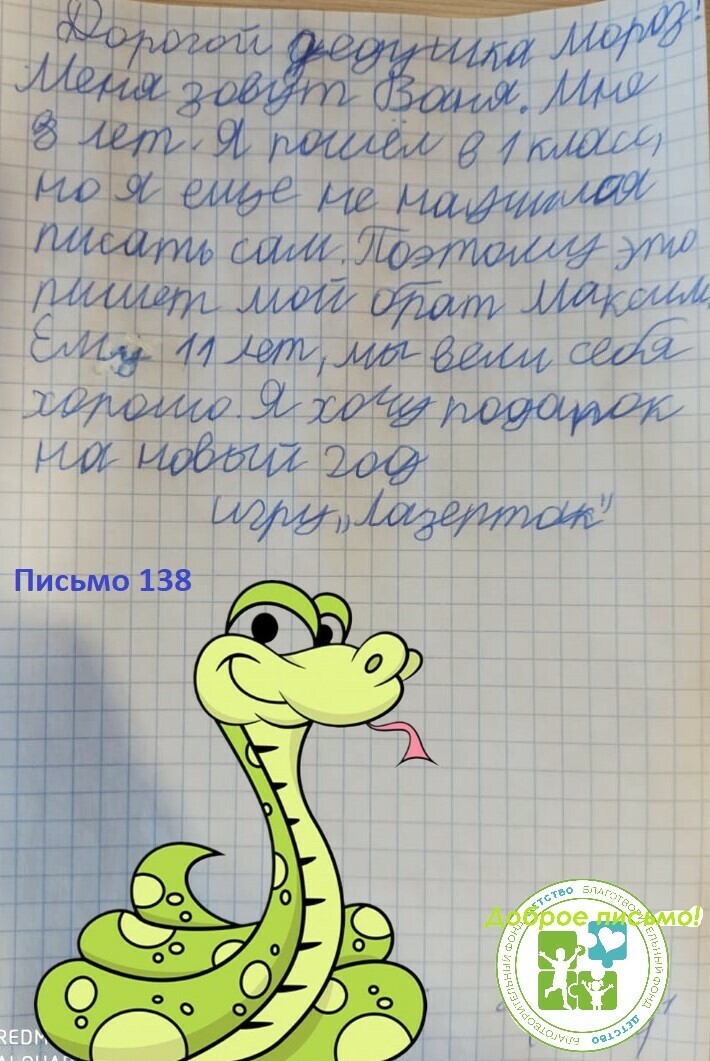 Дорогой дедушка Мороз!
Меня зовут Ваня. Мне
8 лет. Я пошёл в 1 класс,
но я еще не научился
писать сам. Поэтому это
пишет мой брат Максим.
Ему 11 лет, мы вели себя
хорошо. Я хочу подарок
на новый год
игру „Лазертак"
Письмо 138
Доброе письмо!
БЛАГОТВОРИТЕЛЬНЫЙ ФОНД ДЕТСТВО БЛАГОТВОРИТЕЛЬНЫЙ ФОНД ДЕТСТВО
REDM